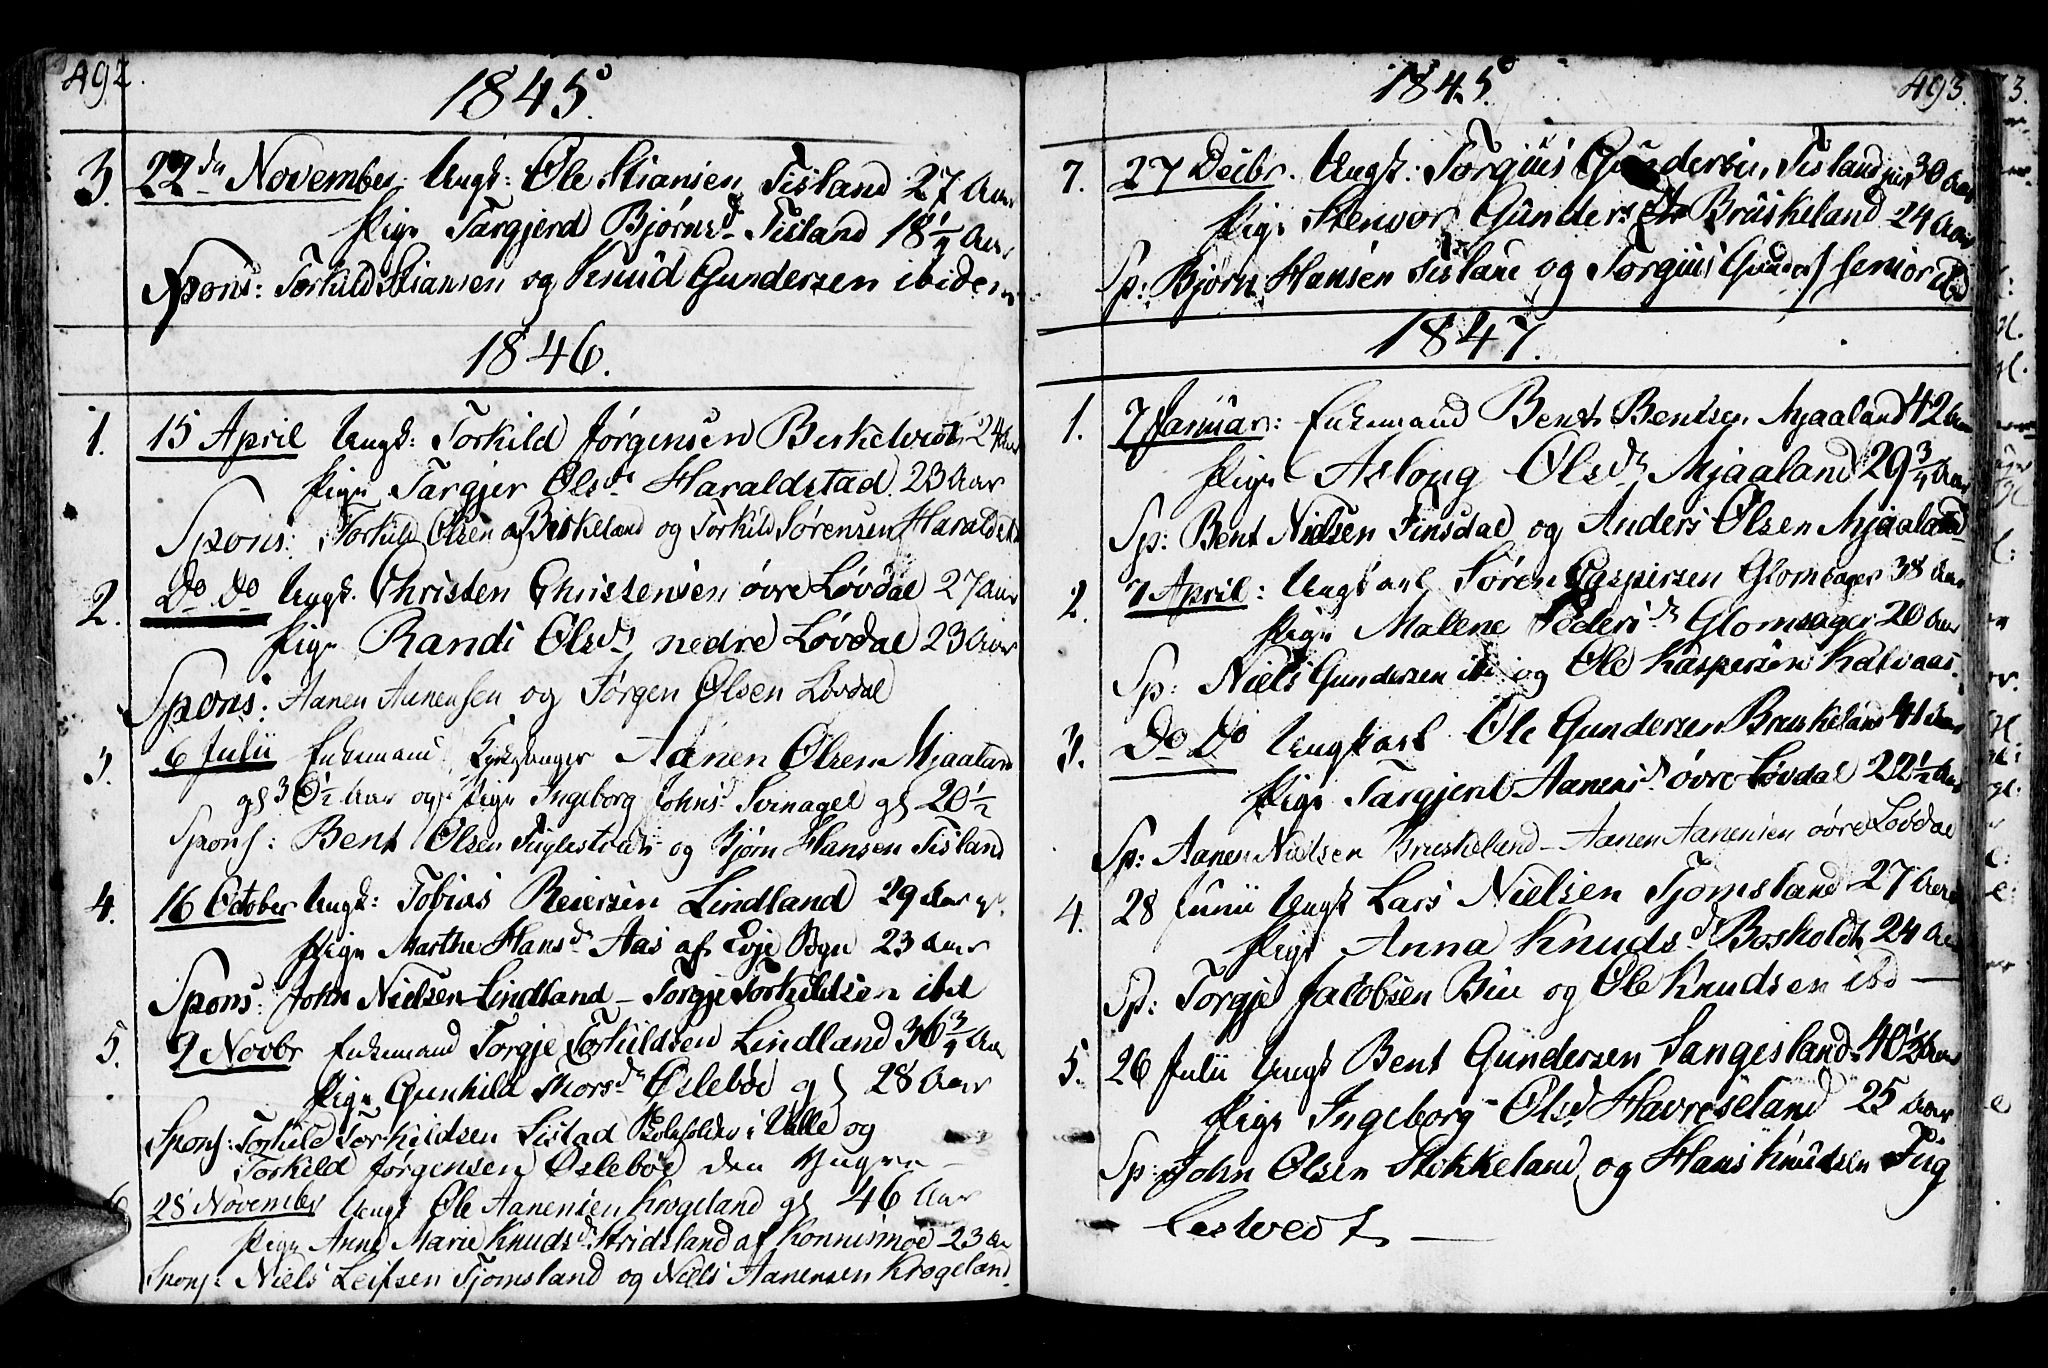 492.
1845.
3. 22de November Ungk: Ole Stiansen Tisland 27 Aar
Pige Targjerd Bjørnsd. Tisland 18 1/4 Aar
Spons: Torkild Stiansen og Knud Gundersen ibidem
1846.
1. 15 April Ungk: Torkild Jørgensen Birkelvedt 24 Aar
Pige Targjer Olsdr Haraldstad 23 Aar
Spons: Torkild Olsen af Birkeland og Torkild Sørensen Haraldst
2. Do. Do Ungk. Christen Christensen øvre Løvdal 27 Aar
Pige Randi Olsdr nedre Løvdal 23 Aar
Spons: Aanen Aanensen og Jørgen Olsen Løvdal
3. 6 Julii Enkemand Kirkesanger Aanen Olsen Mjaaland
gl 36 1/2 Aar og Pige Ingeborg Johnsd Svinagel gl 20 1/2
Spons: Bent Olsen Fuglestvedt og Bjørn Hansen Tisland
4. 16 October Ungk: Tobias Reiersen Lindland 29 Aar gl.
Pige Marthe Hansd. Aas af Evje Sogn 23 Aar
Spons: John Nielsen Lindland - Torgje Torkildsen ibd
5. 9 Novbr Enkemand Torgje Torkildsen Lindland 36 3/4 Aar
Pige Gunhild Thorsdr Oslebøe gl 28 Aar
Spons: Torkild Torkildsen Listad i Valle og
Torkild Jørgensen Oslebøe den Yngre -
6 28 November Ungk Ole Aanensen Krogeland gl 46 Aar
Pige Anne Marie Knudsd. Stridsland af Konnismoe 23 Aar
Spons: Niels Leifsen Tjomsland og Niels Aanensen Krogeland
1845.
493.
7. 27 Decbr. Ungk: Torgius Gundersen, Tisland 30 Aar
Pige Stenvor Gundersdr Brüskeland 24 Aar
Sp: Bjørn Hansen Tisland og Torgius Gunders senior ibd
1847.
1. 7 Januar: Enkemand Bent Bentsen Mjaaland 42 Aar
Pige Asloug Olsdr Mjaaland 29 3/4 Aar
Sp: Bent Nielsen Finsdal og Anders Olsen Mjaaland
2. 7 April: Ungkarl Søren Caspersen Glomsager 38 Aar
Pige Malene Pedersdr Glomsager 20 Aar
Sp: Niels Gundersen ibi og Ole Kaspersen Kalvaas.
3. Do Do Ungkarl Ole Gundersen Bruskeland 41 Aar
Pige Targjerd Aanensd øvre Løvdal 22 1/2 Aar
Sp: Aanen Nielsen Bruskeland - Aanen Aanensen øvre Løvdal
4. 28 Junii Ungk Lars Nielsen Tjomsland 27 Aar
Pige Anna Knudsd Bosholdt 24 Aar
Sp: Torgje Jacobsen Bue og Ole Knudsen ibd -
5. 26 Julii Ungk Bent Gundersen Sangesland 40 1/2 Aar
Pige Ingeborg Olsd Havreseland 25 Aar
Sp: John Olsen Stikkeland og Hans Knudsen Fug
lestvedt -